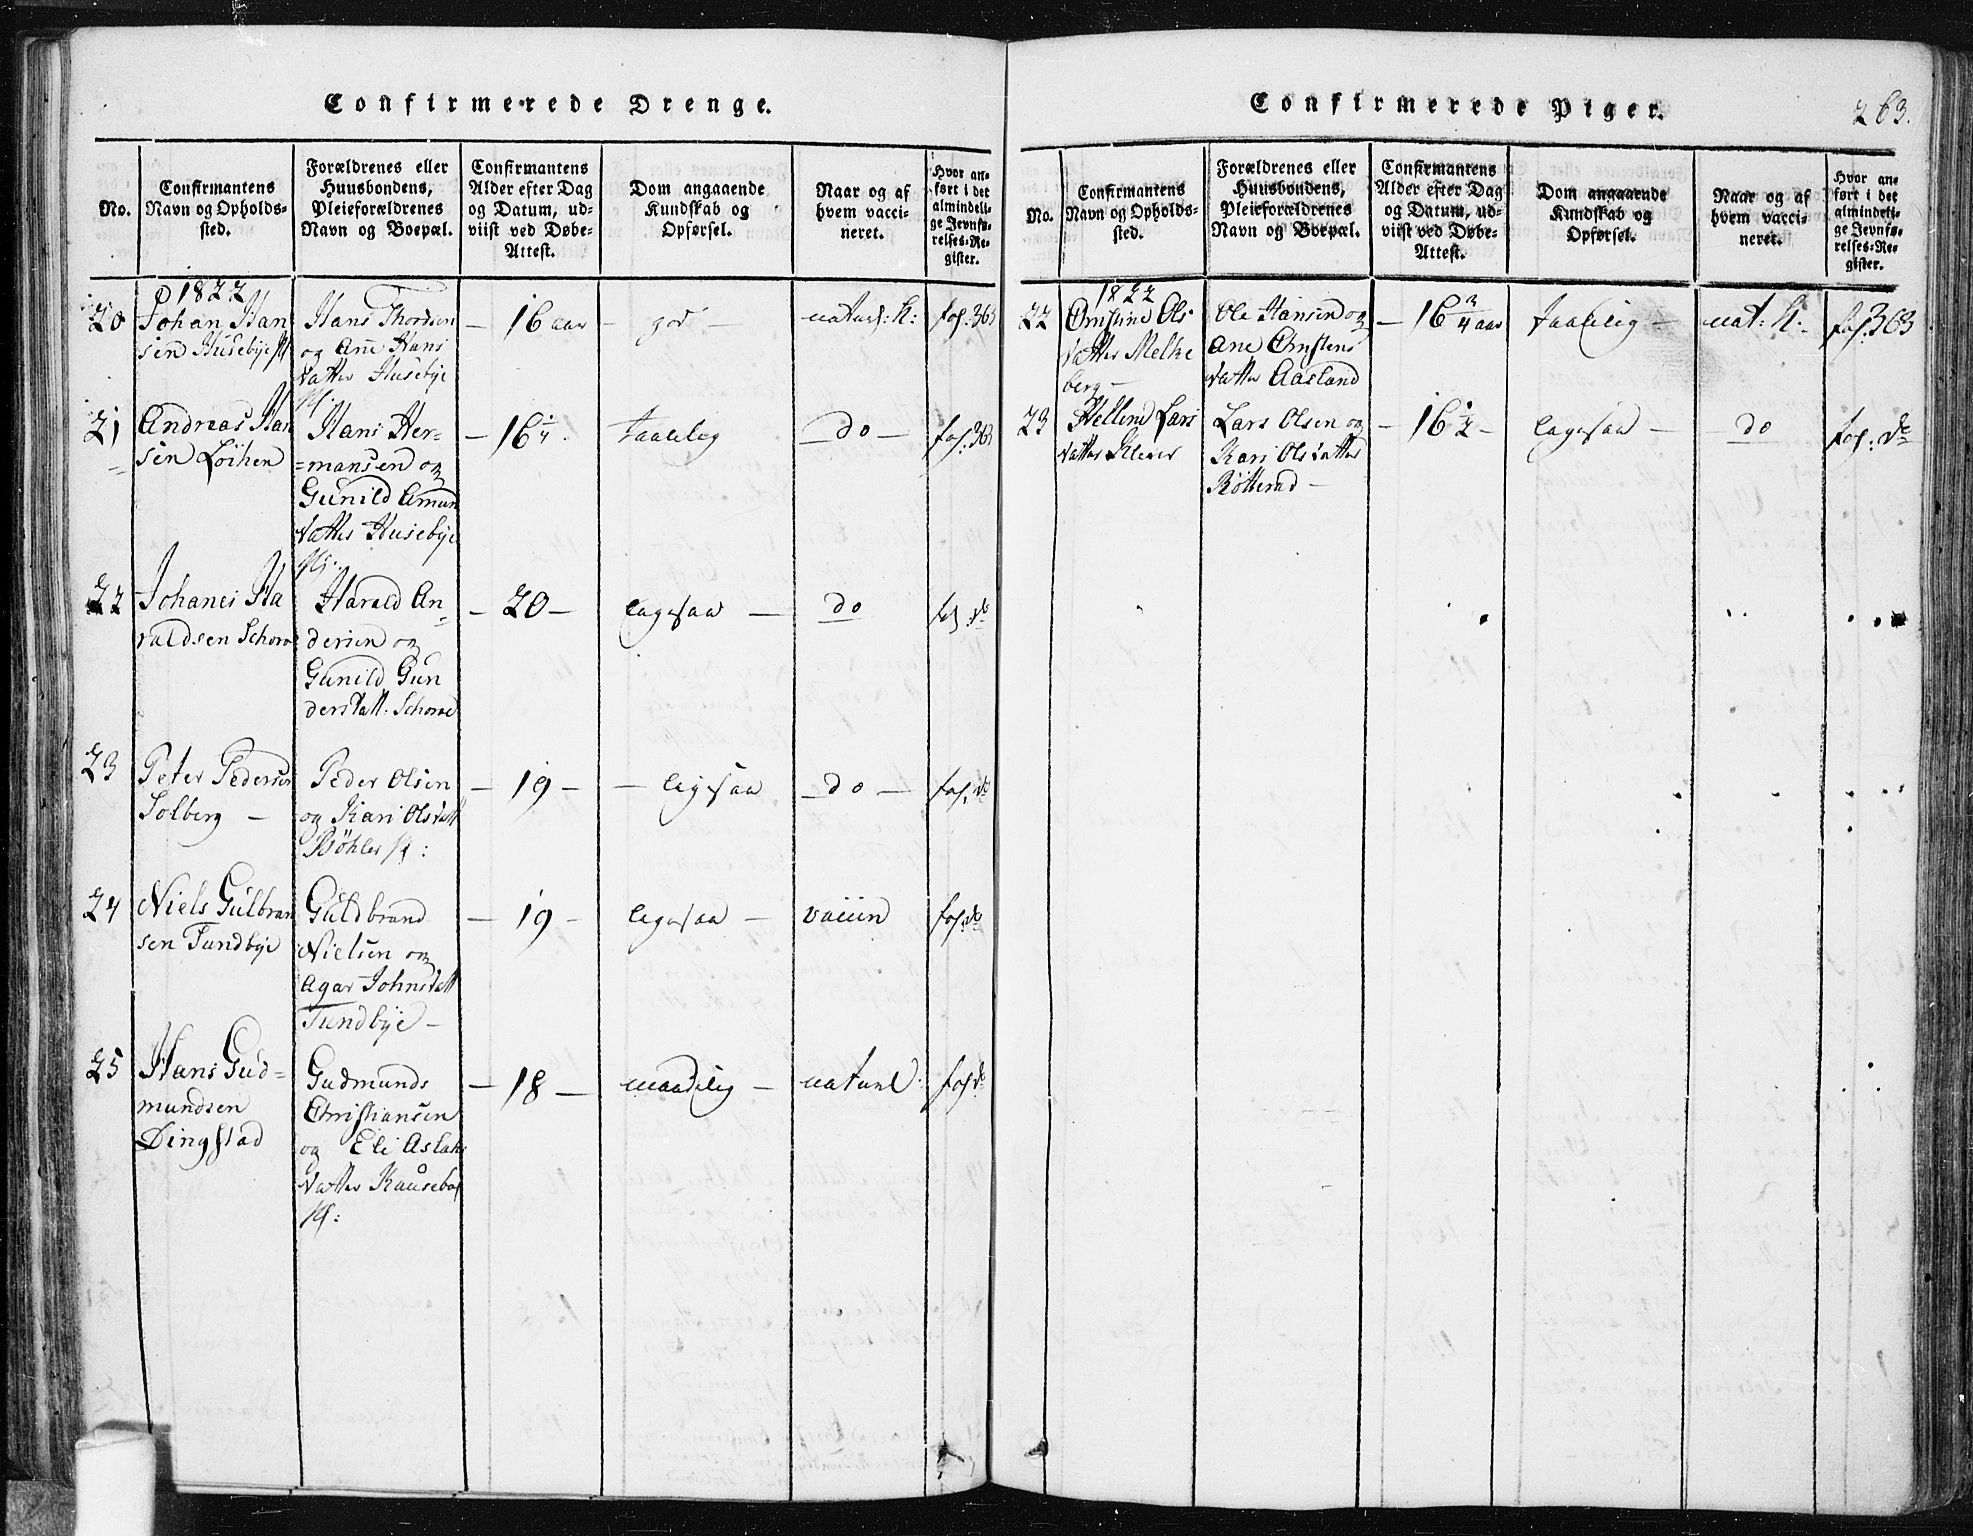 Confirmerede Drenge.
No.
Confirmantens
Navn og Opholds-
sted.
Forældrenes eller
Huusbondens,
Pleieforældrenes
Navn og Boepæl.
Confirmantens
Alder efter Dag
og Datum, ud-
viist ved Døbe-
Attest.
Dom angaaende
Kundskab og
Opførsel.
Naar og af
hvem vacci-
neret.
Hvor an-
ført i det
almindeli-
ge Jevnfø-
relses-Re-
gister.
1822
20
Johan Han
sen Husebye
Hans Thordsen
og Anne Hans
datter Husebye
— 16 aar —
god —
naturl: K:
fol. 363
21
Andreas Han
sen Löiken
Hans Her-
=mansen og
Gunild Amun
datter Husebye
— 16 1/4.
taalelig
— do —
fol. 363
22
Johanes Ha
raldsen Schorve
Harald An-
dersen og
Gunild Gun
dersdatt. Schorve
— 20 —
ligesaa —
do
fol. do
23
Peter Pedersen
Solberg —
Peder Olsen
og Kari Olsdatt
Böhler
— 19 —
— ligesaa
— do —
fol. do
24
Niels Gulbran
sen Tundbye
Guldbrand
Nielsen og
Agar Johnsdatt
Tundbye —
— 19 —
ligesaa —
vaccin
fol. do
25
Hans Gud=
mundsen
Dingstad
Gudmunds
Christiansen
og Eli Aslaks
datter
— 18 —
maadelig —
naturl:
fol. do
Confirmerede Piger.
263.
No.
Confirmantens
Navn og Opholds-
sted.
Forældrenes eller
Huusbondens,
Pleieforældrenes
Navn og Boepæl.
Confirmantens
Alder efter Dag
og Datum, ud-
viist ved Døbe-
Attest.
Dom angaaende
Kundskab og
Opførsel.
Naar og af
hvem vacci-
neret.
Hvor an-
ført i det
almindeli-
ge Jevnfø-
relses-Re-
gister.
1822
22
Christine Ols
datter Melke
berg —
Ole Hansen og
Ane Christens
datter Aasland
— 16 3/4 aar
taalelig —
nat: K:
fol. 363
23
Hellene Lars
datter Klever
Lars Olsen og
Kari Olsdatter
Rötterud —
— 16 1/2 —
ligesaa —
— do
fol: do